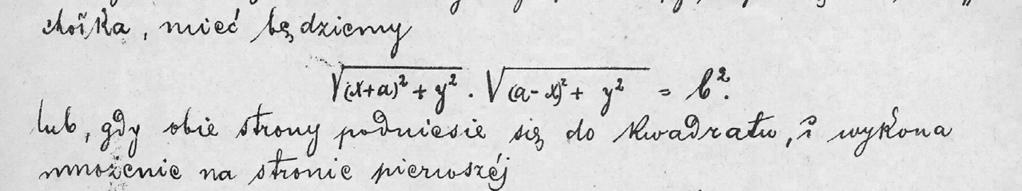 mieć będziemy
√(x+a)² + y² . √(a-x)² + y² = b².
lub, gdy obie strony podniesie się do kwadratu, i wykona
mnożenie na stronie pierwszéj